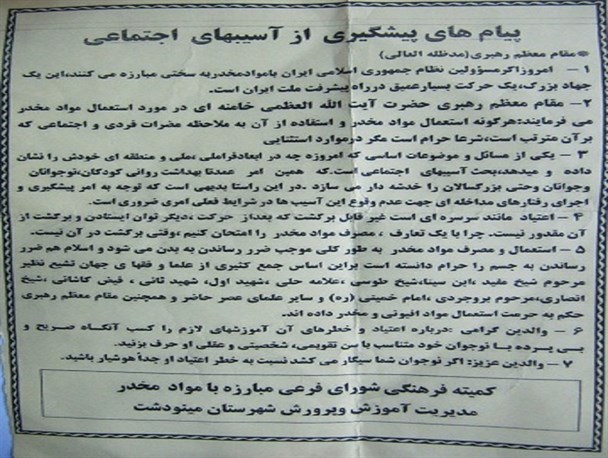 پیام های پیشگیری از آسیبهای اجتماعی
مقام معظم رهبری (مدظله العالی)
۱ – امروز اگر مسؤولین نظام جمهوری اسلامی ایران با موادمخدر به سختی مبارزه می کنند، این یک
جهاد بزرگ، یک حرکت بسیار عمیق در راه پیشرفت ملت ایران است.
۲– مقام معظم رهبری حضرت آیت الله العظمی خامنه ای در مورد استعمال مواد مخدر
می فرمایند: هرگونه استعمال مواد مخدر و استفاده از آن به ملاحظه مضرات فردی و اجتماعی که
برآن مترتب است، شرعا حرام است مگر در موارد استثنایی
۳ – یکی از مسائل و موضوعات اساسی که امروزه چه در ابعاد فراملی، ملی و منطقه ای خودش را نشان
داده و میدهد، بحث آسیبهای اجتماعی است. که همین امر عمدتا بهداشت روانی کودکان، نوجوانان
وجوانان وحتی بزرگسالان را خدشه دار می سازد . در این راستا بدیهی است که توجه به امر پیشگیری و
اجرای رفتارهای مداخله ای جهت عدم وقوع این آسیب ها در شرایط فعلی امری ضروری است.
۴ – اعتیاد مانند سرسره ای است غیر قابل برگشت که بعد از حرکت ، دیگر توان ایستادن و برگشت از
آن مقدور نیست. چرا با یک تعارف ، مصرف مواد مخدر را امتحان کنیم ، وقتی برگشت در آن نیست.
۵ – استعمال و مصرف مواد مخدر به طور کلی موجب ضرر رساندن به بدن می شود و اسلام هم ضرر
رساندن به جسم را حرام دانسته است براین اساس جمع کثیری از علما و فقها ی جهان تشیع نظیر
مرحوم شیخ مفید ، ابن سینا، شیخ طوسی ، علامه حلی ، شهید اول، شهید ثانی ، فیض کاشانی ، شیخ
انصاری، مرحوم بروجردی ، امام خمینی (ره) و سایر علمای عصر حاضر و همچنین مقام معظم رهبری
حکم به حرمت استعمال مواد افیونی و مخدر داده اند.
۶ – والدین گرامی : درباره اعتیاد و خطرهای آن آموزشهای لازم را کسب آنگاه صریح و
بی پرده با نوجوان خود متناسب با سن تقویمی، شخصیتی و عقلی او حرف بزنید.
۷ – والدین عزیز: اگر نوجوان شما سیگار می کشد نسبت به خطر اعتیاد او جداً هوشیار باشید.
کمیته فرهنگی شورای فرعی مبارزه با مواد مخدر
مدیریت آموزش وپرورش شهرستان مینودشت